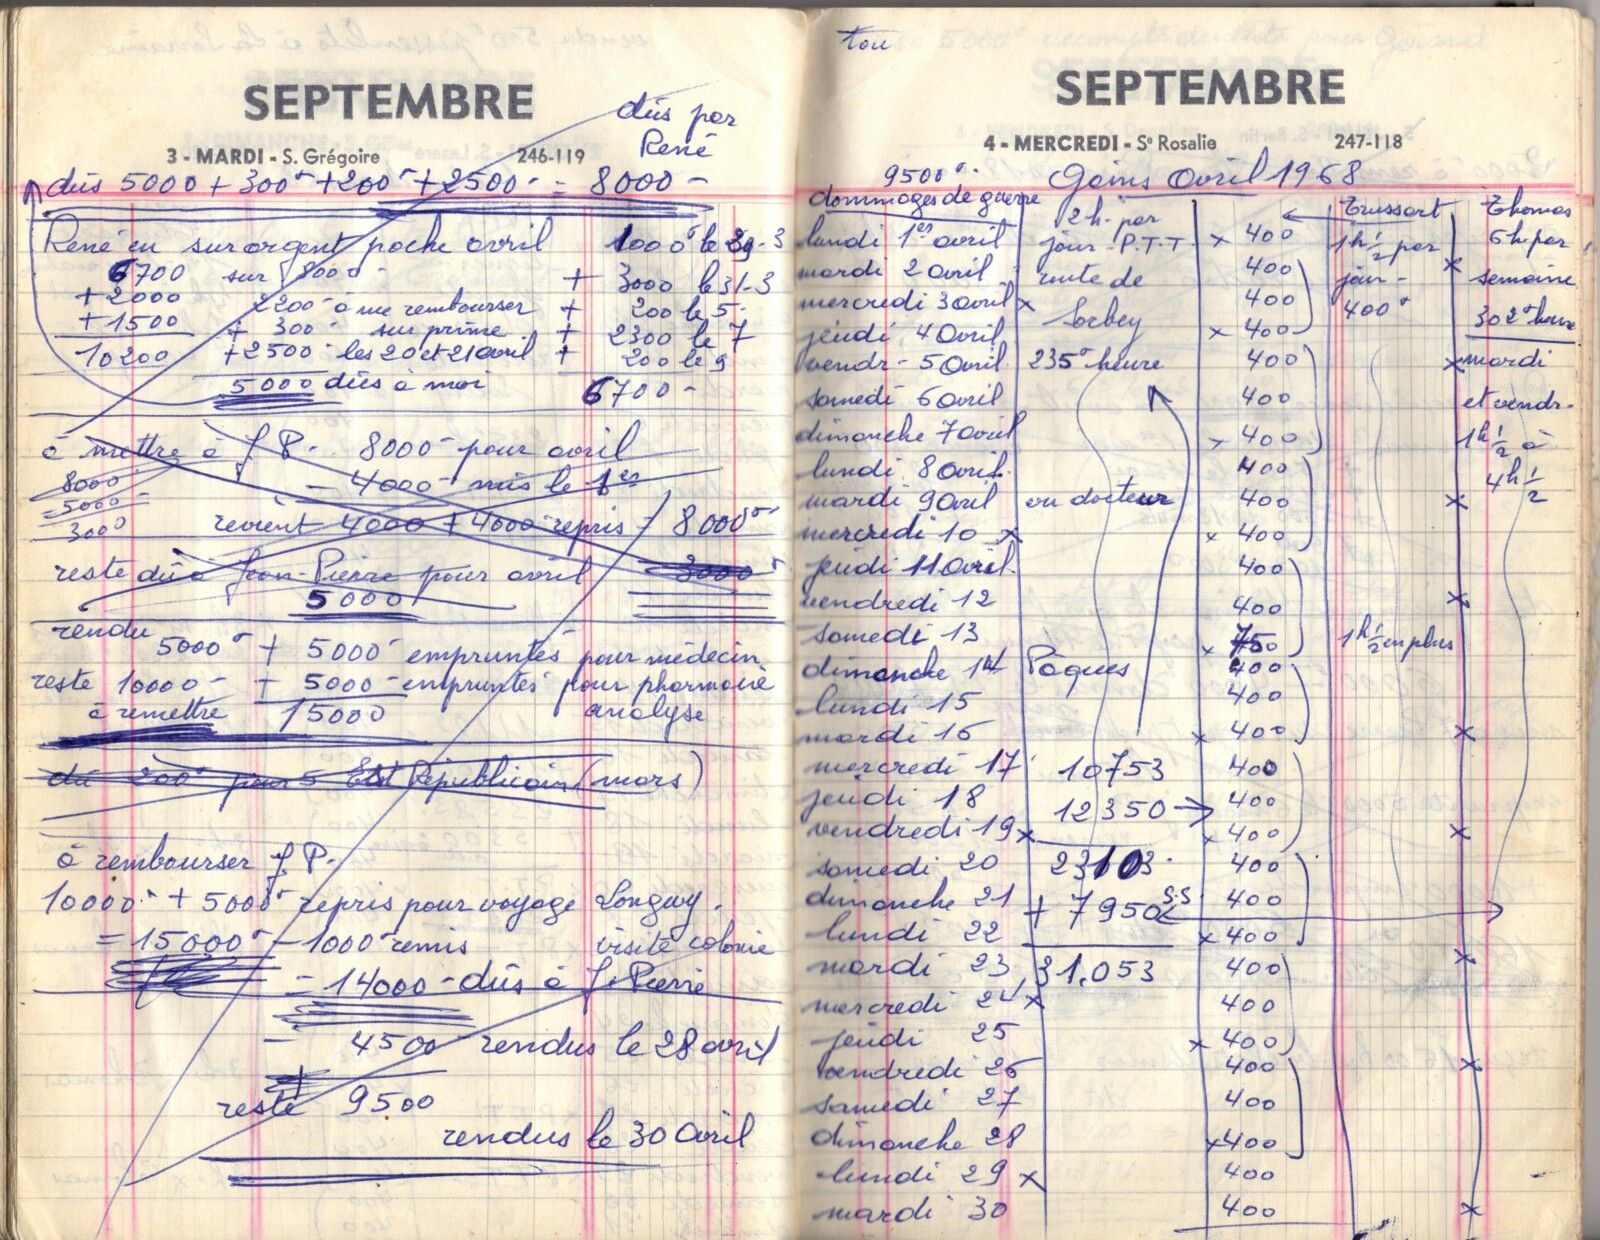 SEPTEMBRE
3 - MARDI - S. Grégoire 246-119
dûs par
René
dûs 5000 + 300 + 200 + 2500 = 8000 -
René eu sur argent poche avril 1000 le 29-3
6700 sur 8000 + 3000 le 31-3
+ 2000 2200 à me rembourser + 200 le 5
+ 1500 + 300 sur prime + 2300 le 7
10200 + 2500 les 20 et 21 avril + 200 le 9
5000 dûs à moi 6700 -
à mettre à J P. 8000 pour avril
8000 - 4000 mis le 1er
- 5000
3000 revient 4000 + 4000 repris 8000
reste dû à Jean-Pierre pour avril 3000
5000
rendu 5000 + 5000 empruntés pour médecin
reste 10000 - + 5000 empruntés pour pharmacie
à remettre 15000 analyse
dû 200 pour 5 Est Républicain (mars)
à rembourser J P.
10000 + 5000 repris pour voyage Longwy.
= 15000 - 1000 remis visite colonie
= 14000 - dûs à J. Pierre
- 4500 rendus le 28 avril
reste 9500
rendus le 30 Avril
tou
SEPTEMBRE
4 - MERCREDI - Se Rosalie 247-118
9500 Gains Avril 1968
dommages de guerre
2h. par Trussart Thomas
lundi 1er avril jour - P.T.T x 400 1h 1/2 par 6h par
mardi 2 avril route de 400 jour - x semaine
mercredi 3 avril x Sorbey 400 400
jeudi 4 avril x 400 302 heure
vendr - 5 Avril 235 heure 400 x mardi
samedi 6 avril 400 et vendr.
dimanche 7 avril x 400 1h 1/2 à
lundi 8 avril 400 4h 1/2
mardi 9 Avril vu docteur 400 x
mercredi 10 x x 400
jeudi 11 Avril 400
vendredi 12 400 x
samedi 13 x 750 1h 1/2 en plus
dimanche 14 Pâques 400
lundi 15 400
mardi 16 x 400 x
mercredi 17 10753 400
jeudi 18 12350 → 400
vendredi 19 x x 400 x
samedi 20 23103 400
dimanche 21 + 7950 S.S 400
lundi 22 x 400
mardi 23 31.053 400 x
mercredi 24 x 400
jeudi 25 x 400
vendredi 26 400 x
samedi 27 400
dimanche 28 x 400
lundi 29 x 400
mardi 30 400 x